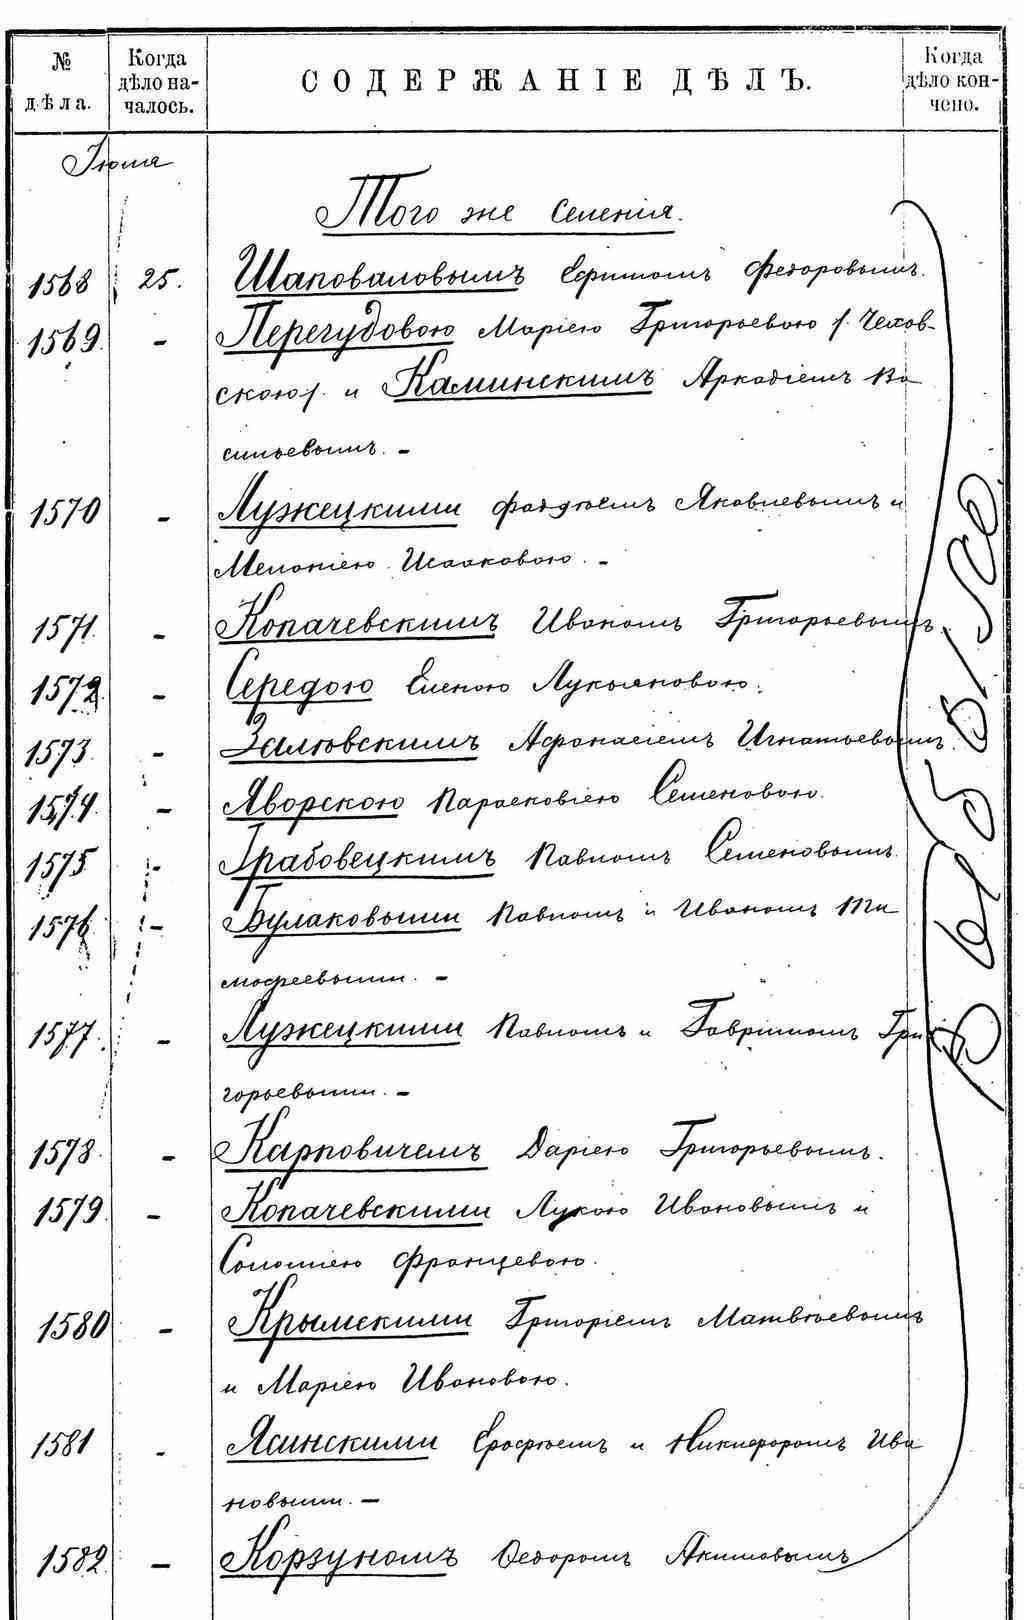 № дѣла.
Когда дѣло на-
чалось.
СОДЕРЖАНІЕ ДѢЛЪ.
Когда дѣло кон-
чено.
Іюля
Того же селенія.
1568 25. Шаповаловымъ Ефимомъ Федоровымъ.
1569. - Перегудовою Маріею Григорьевою /. Чехов-
скою/. и Каминскимъ Аркадіемъ Ва
сильевымъ. -
1570 - Лужецкими Фаддѣемъ Яковлевымъ и
Меланіею Исааковою. -
1571. - Копачевскимъ Иваномъ Григорьевымъ.
1572. - Середою Еленою Лукьяновою.
1573. - Залювскимъ Афанасіемъ Игнатьевымъ.
1574. - Яворскою Парасковіею Семеновою.
1575 - Грабовецкимъ Павломъ Семеновымъ.
1576 - Булаковыми Павломъ и Иваномъ Ти
мофеевыми. -
1577. - Лужецкими Павломъ и Гавріиломъ Гри
горьевыми. -
1578. - Карповичемъ Даріею Григорьевымъ.
1579. - Копачевскими Лукою Ивановымъ и
Соломіею Францевою.
1580 - Крымскими Григоріемъ Матвѣевымъ
и Маріею Ивановою.
1581 - Ясинскими Ерофѣемъ и Никифоромъ Ива
новыми. -
1582. - Корзуномъ Федоромъ Акимовымъ